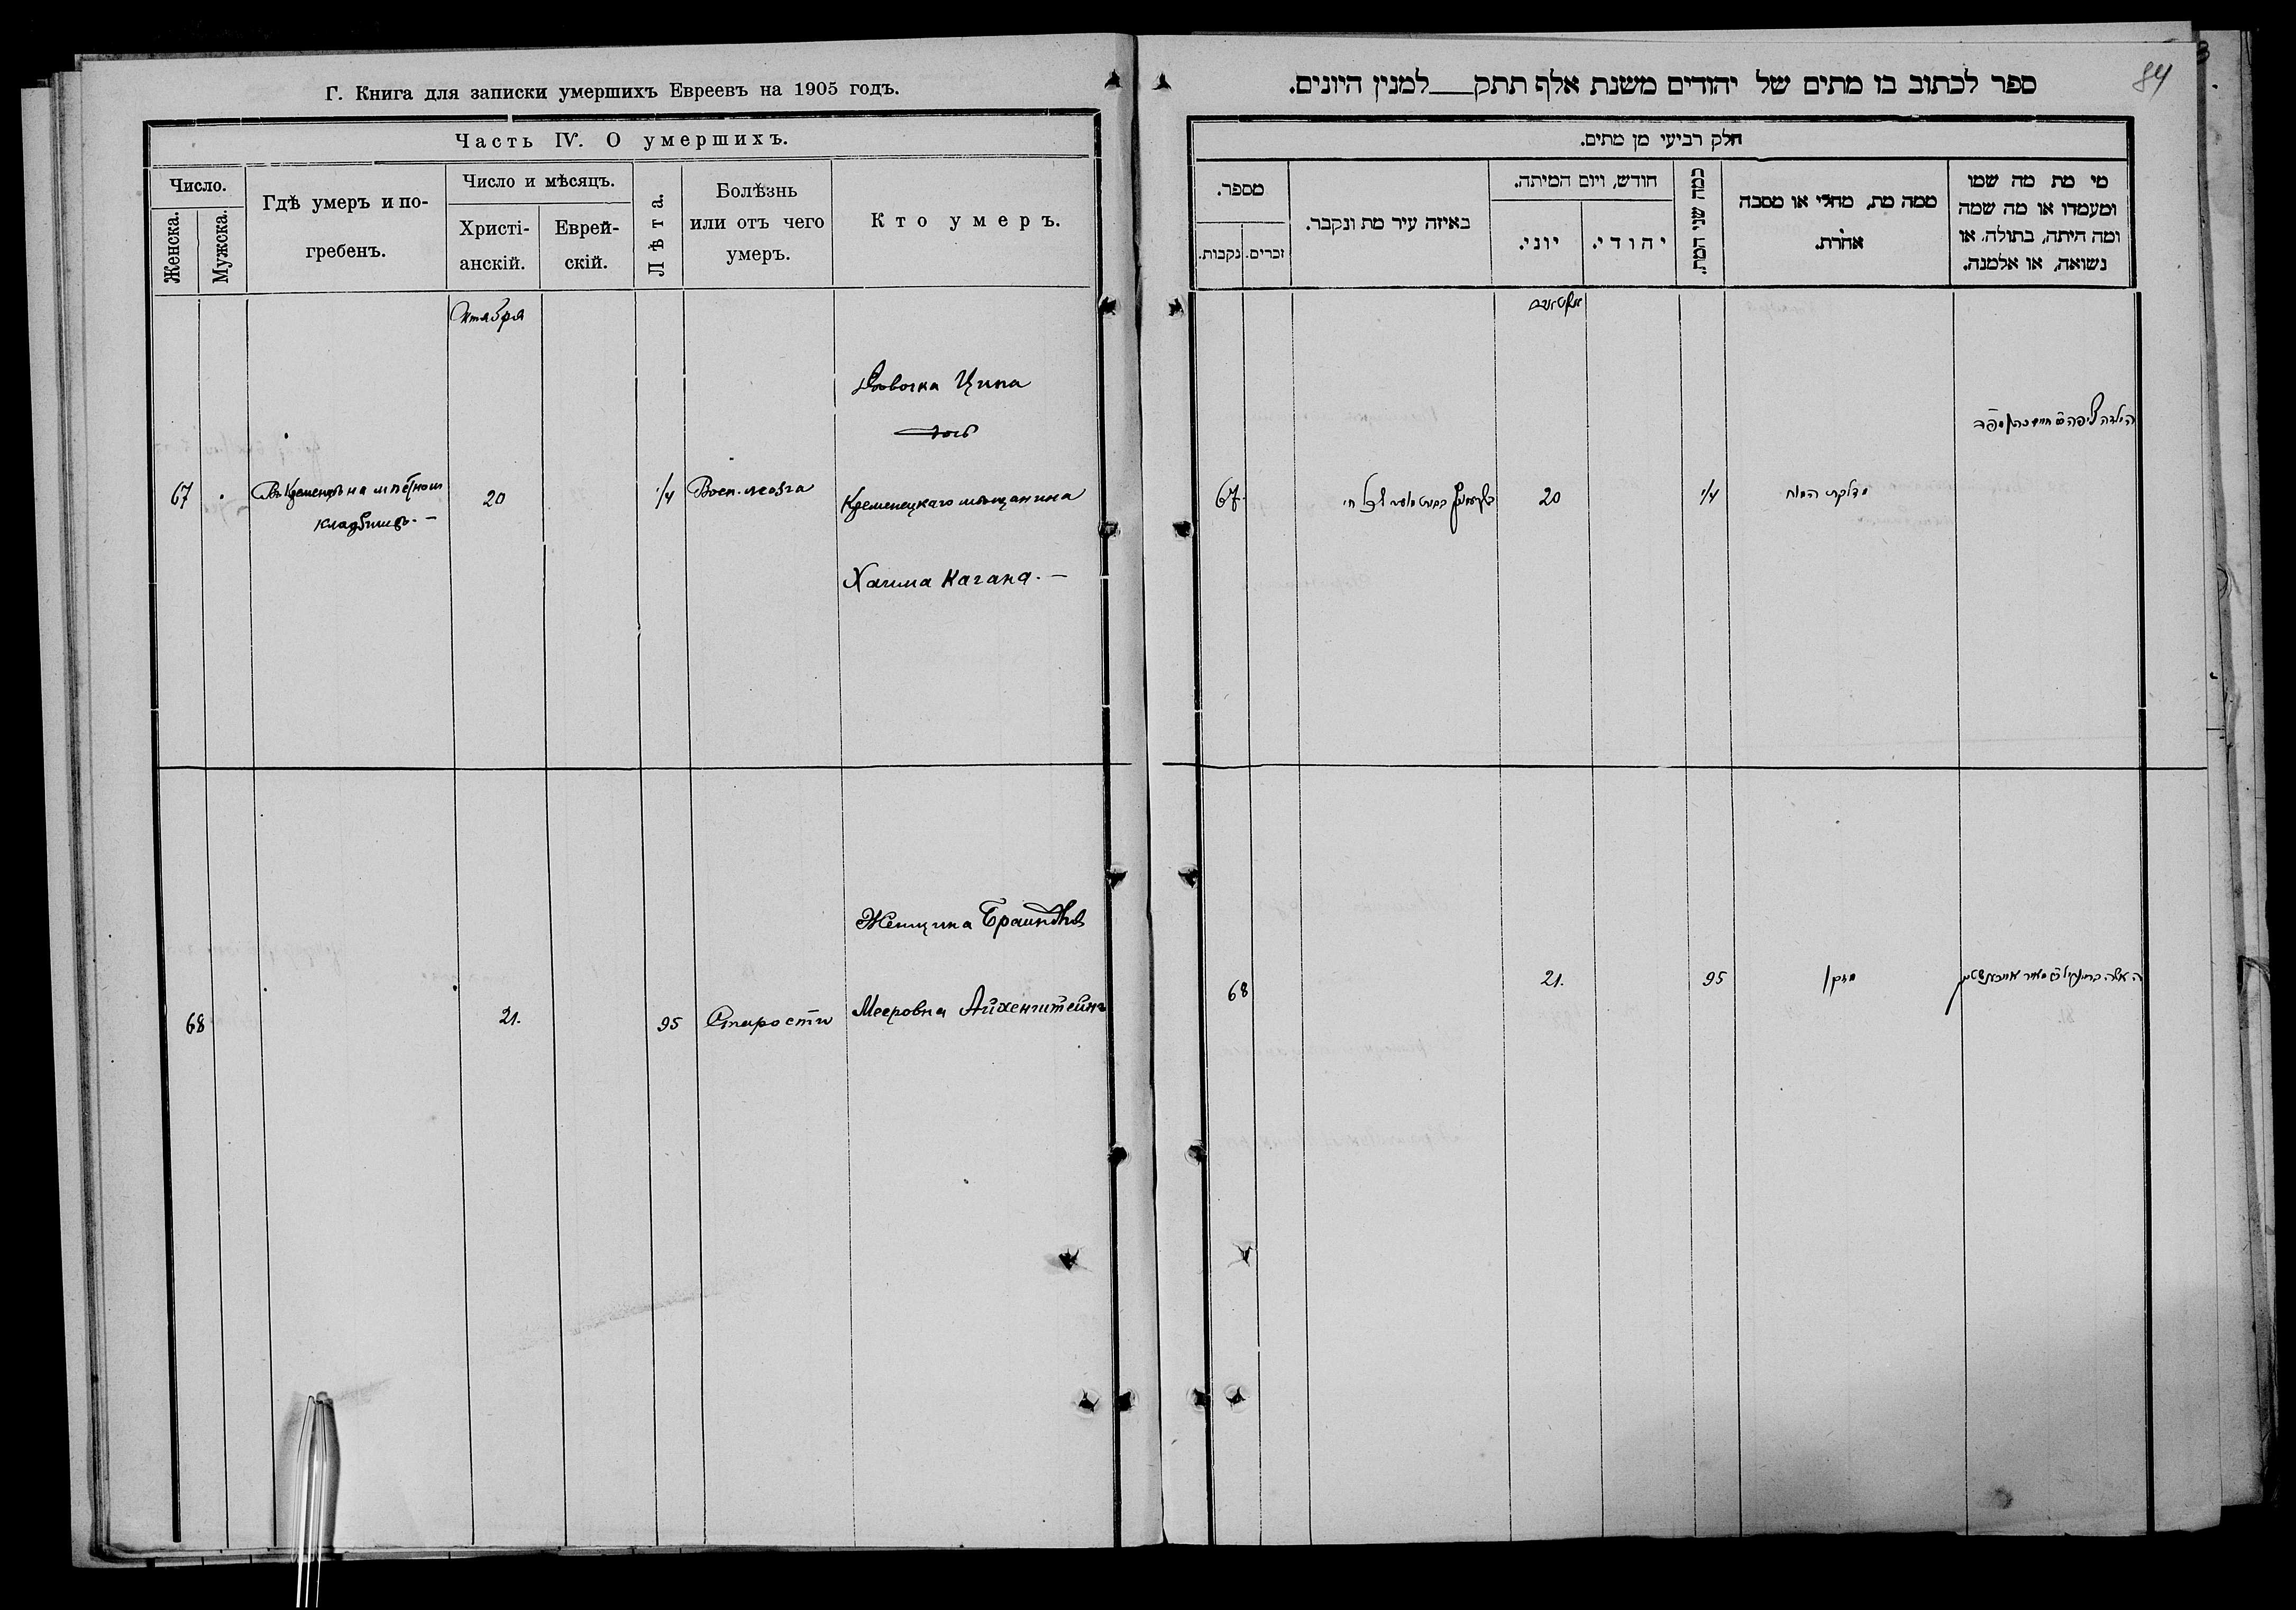 Г. Книга для записки умершихъ Евреевъ на 1905 годъ.
Часть IV. О умершихъ.
Число.
Женска.
Мужска.
Гдѣ умеръ и по-
гребенъ.
Число и мѣсяцъ.
Христі-
анскій.
Еврей-
скій.
Лѣта.
Болѣзнь
или отъ чего
умеръ.
Кто умеръ.
Октября
67
Въ Кременцѣ на мѣстном
кладбищѣ. —
20
1/4
Восп. мозга
Девочка Ципа
дочь
Кременецкаго мѣщанина
Хаима Кагана. —
68
21.
95
Старости
Женщина
Мееровна Айхенштейнъ
84
ספר לכתוב בו מתים של יהודים משנת אלף תתק___למנין היונים.
חלק רביעי מן מתים.
מספר.
נקבות.
זכרים.
באיזה עיר מת ונקבר.
חודש, ויום המיתה.
יוני.
יהודי.
כמה שני המת.
ממה מת, מחלי או מסבה
אחרת.
מי מת מה שמו
ומעמדו או מה שמה
ומה היתה, בתולה, או
נשואה, או אלמנה.
67.
20
1/4
דלקת המוח
הילדה
68
21.
95
זקן
האשה